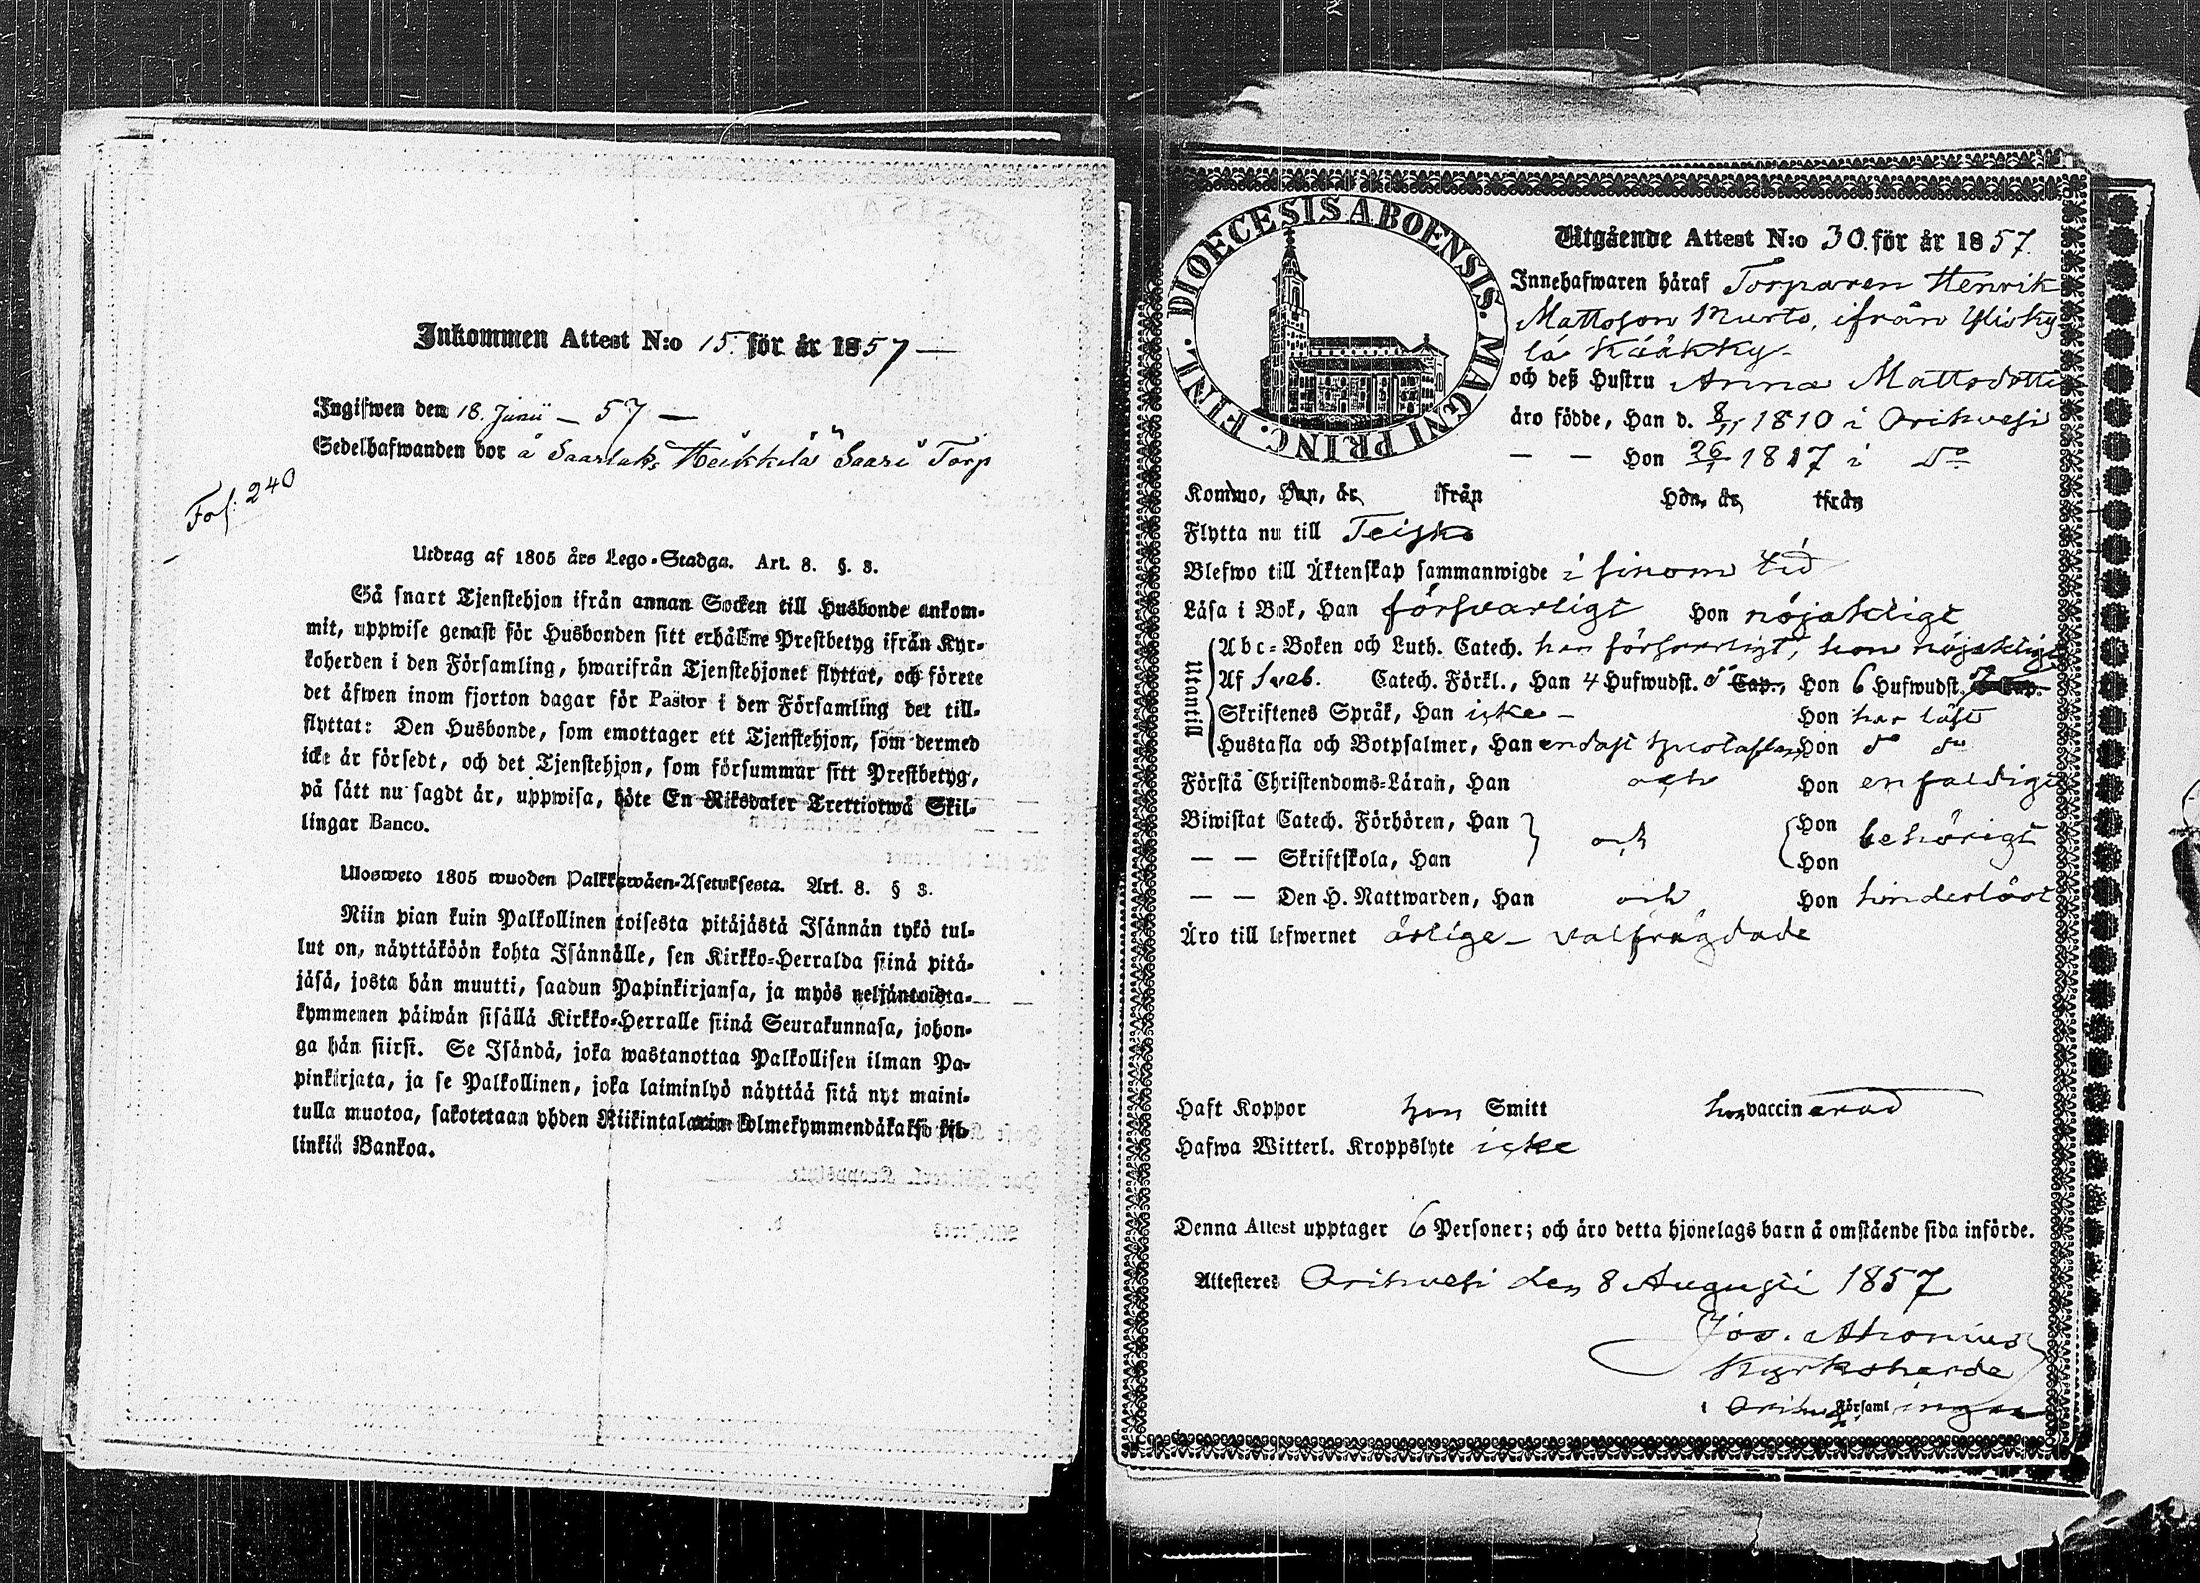 Inkommen Attest N:o 15. för år 1857 —
Ingifwen den 18. Junii — 57 —
Sedelhafwanden bor å Saarlaks Heikkilä Saari Torp
Fol: 240
Utdrag af 1805 års Lego-Stadga. Art. 8. §. 8.
Så snart Tjenstehjon ifrån annan Socken till Husbonde ankom-
mit, uppwise genast för Husbonden sitt erhållne Prestbetyg ifrån Kyr-
koherden i den Församling, hwarifrån Tjenstehjonet flyttat, och förete
det äfwen inom fjorton dagar för Pastor i den Församling det till-
flyttat: Den Husbonde, som emottager ett Tjenstehjon, som dermed
icke är försedt, och det Tjenstehjon, som försummar sitt Prestbetyg,
på sätt nu sagdt är, uppwisa, böte En Riksdaler Trettiotwå Skil-
lingar Banco.
Ulosweto 1805 wuoden Palkkawäen-Asetuksesta. Art. 8. § 8.
Niin pian kuin Palkollinen toisesta pitäjästä Isännän tykö tul-
lut on, näyttäköön kohta Isännälle, sen Kirkko-Herralda siinä pitä-
jäsä, josta hän muutti, saadun Papinkirjansa, ja myös neljäntoista-
kymmenen päiwän sisällä Kirkko-Herralle siinä Seurakunnasa, johon-
ga hän siirsi. Se Isändä, joka wastanottaa Palkollisen ilman Pa-
pinkirjata, ja se Palkollinen, joka laiminlyö näyttää sitä nyt maini-
tulla muotoa, sakotetaan yhden Riikintalarin kolmekymmendäkaksi kil-
linkiä Bankoa.
DIOECESIS ABOENSIS. MAGNI PRINC. FINL.
Utgående Attest N:o 30. för år 1857.
Innehafwaren häraf Torparen Henrik
Mattsson Murto, ifrån Ylisky
lä Kääkky
och deß Hustru Anna Mattsdotter
äro födde, Han d. 8/11 1810 i Orihvesi
— — Hon 26/1 1817 i do
Kommo, Han, är ifrån Hon, är ifrån
Flytta nu till Teisko
Blefwo till Äktenskap sammanwigde i sinom tid
Läsa i Bok, Han försvarligt Hon nöjaktligt
Utantill
Abc-Boken och Luth. Catech. han försvarligt, hon nöjaktligt
Af Sveb. Catech. Förkl., Han 4 Hufwudst. Cap., Hon 6 Hufwudst. Cap.
Skriftenes Språk, Han icke — Hon har läst
Hustafla och Botpsalmer, Han endast Hustaflan Hon do do
Förstå Christendoms-Läran, Han och Hon enfaldigt
Biwistat Catech. Förhören, Han och Hon behörigt
— — Skriftskola, Han Hon
— — Den H. Nattwarden, Han och Hon hinderlöst
Äro till lefwernet ärlige — välfrägdade
Haft Koppor han Smitt hon vaccinerad
Hafwa Witterl. Kroppslyte icke
Denna Attest upptager 6 Personer; och äro detta hjonelags barn å omstående sida införde.
Attesteres Orihvesi den 8 Augusti 1857
Jos. Ahonius
Kyrkoherde
i Församl